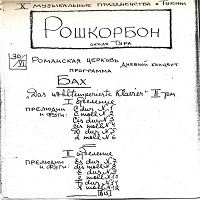 X МУЗЫКАЛЬНЫЕ ПРАЗДНЕСТВА в ТУРЕНИ
РОШКОРБОН
около ТУРА
30/VI
РОМАНСКАЯ ЦЕРКОВЬ ДНЕВНОЙ КОНЦЕРТ
ПРОГРАММА
БАХ
"Das wohltemperierte Klavier" II том
I отделение
ПРЕЛЮДИИ и ФУГИ:
C dur N.1
c moll N.2
Cis dur N.3
cis moll N.4
D dur N.5
d moll N.6
II отделение
ПРЕЛЮДИИ и ФУГИ:
Es dur N.7
N.8
N.9
e moll N.10
F dur N.11
f moll N.12